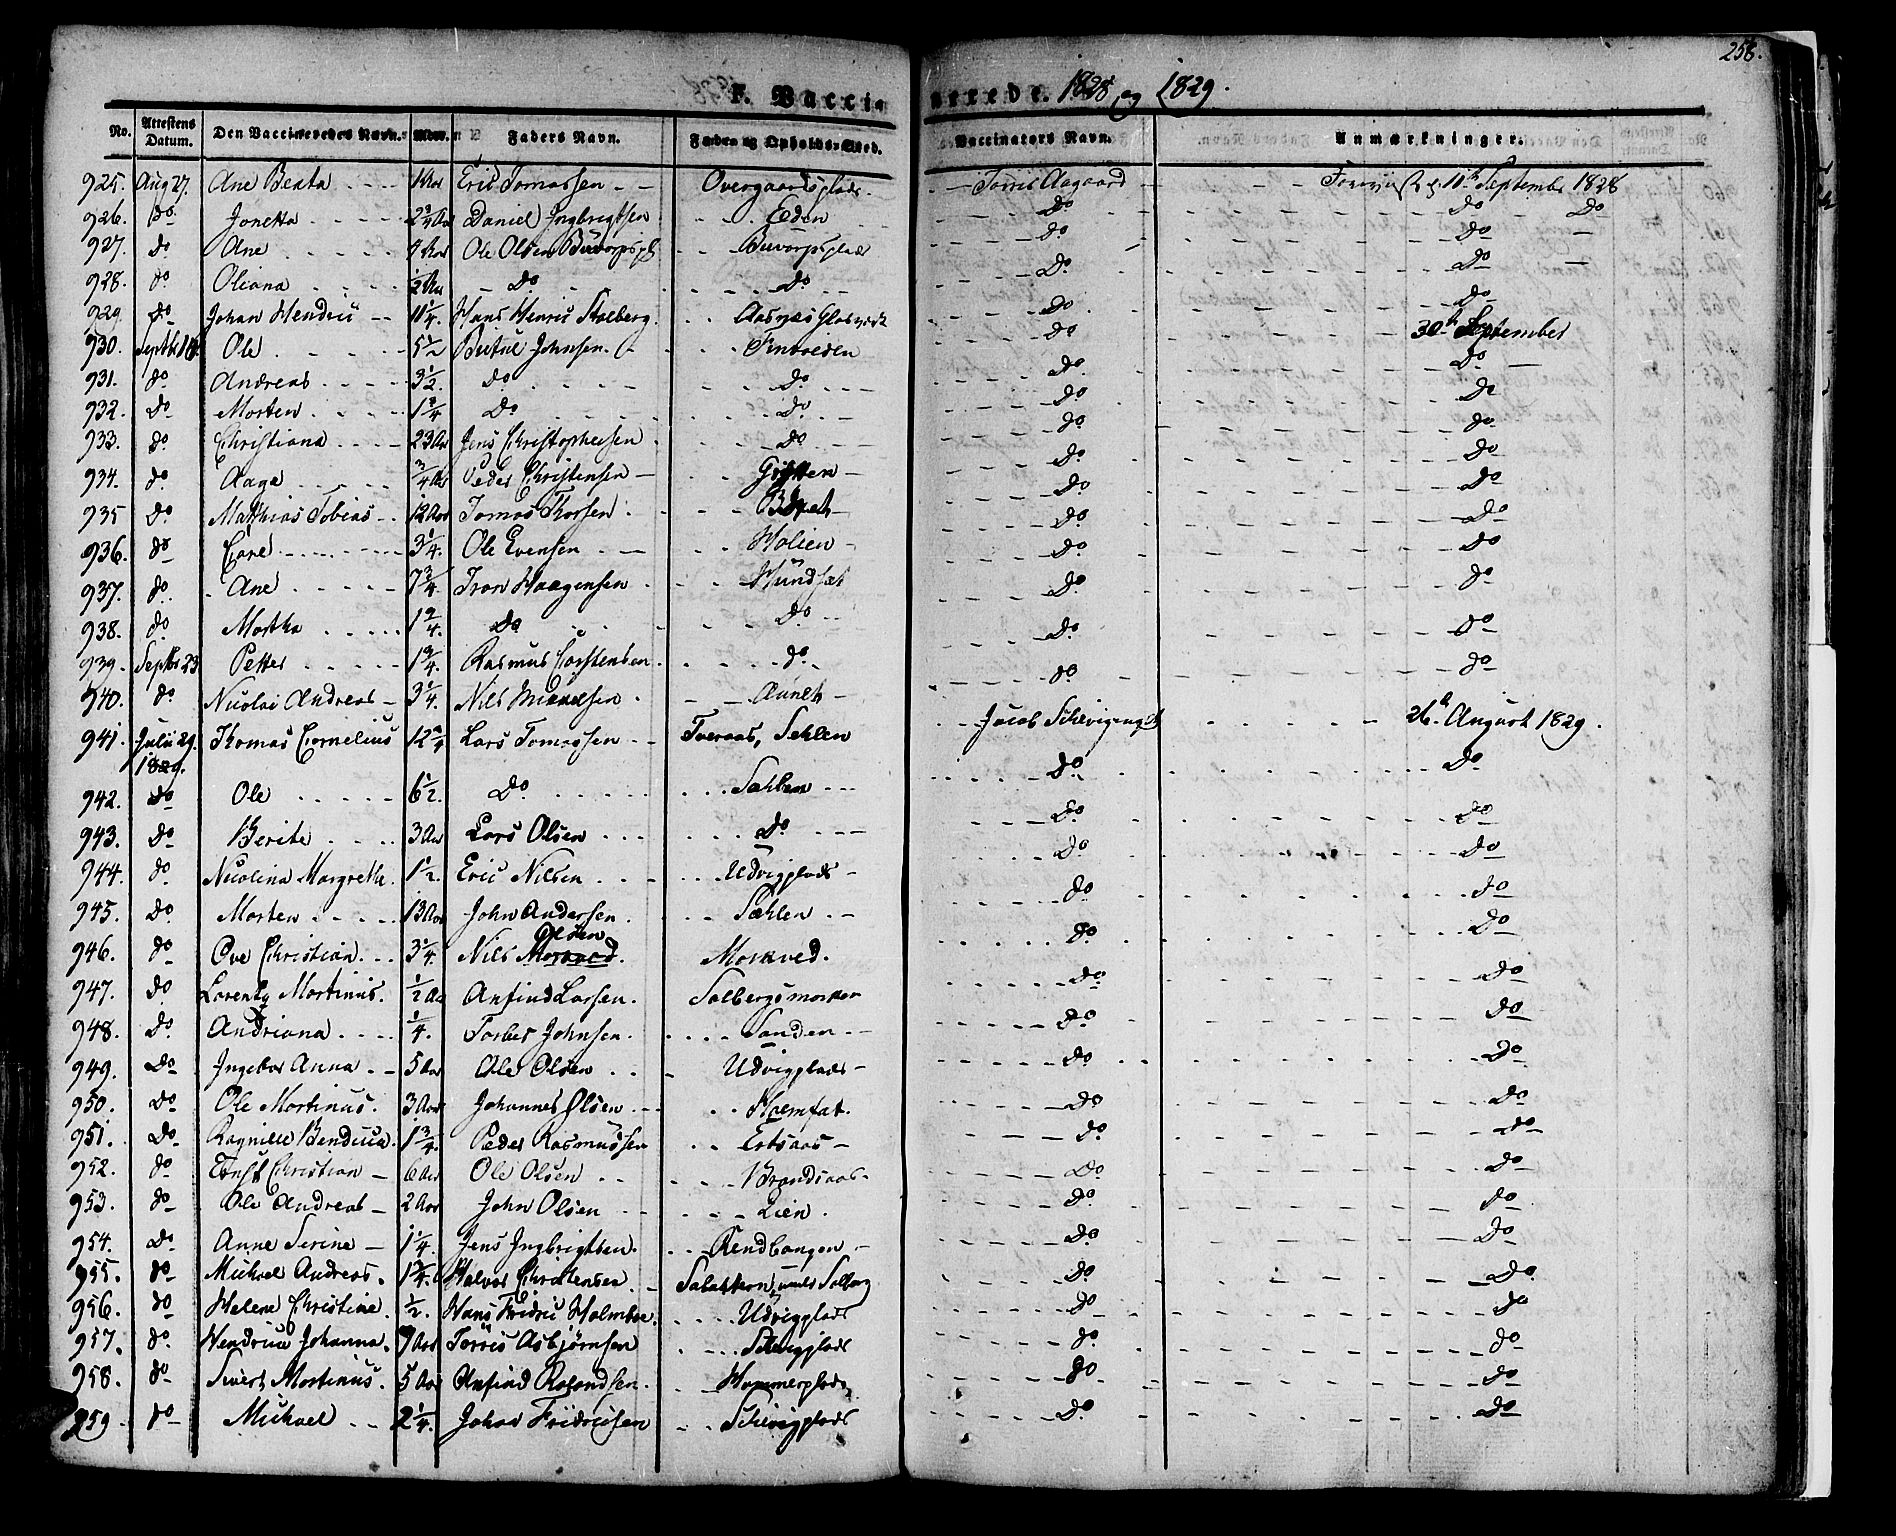 258.
F. Vaccinerede. 1828 og 1829.
No. Attestens Datum. Den Vaccineredes Navn. Alder. Faders Navn. Føde- og Opholds-Sted. Vaccinators Navn. Anmærkninger.
925. Aug 27. Ane Beata 1 Aar Eric Tomassen Overgaardsplads Torris Aagaard 11th September 1828
926. do Jonetta 2¾ Aar Daniel Ingbrigtsen Eeden Do Do Do
927. do Ane 4 Aar Ole Olsen Buvorpspl. Buvorpsplads Do Do
928. do Oliana ½ Aar Do Do Do Do
929. Do Johan Hendric 11¼. Hans Henric Stolberg Aasnæs Glasværk Do Do
930. Septbr Ole 5½ Johnsen Do 30th September
931. do Andreas 3½. Do Do Do Do
932. Do Morten 1¾ Do Do Do Do
933. do Christiana 23 Aar Jens Christophersen Do Do Do
934. do Aage ¾ Aar Peder Christensen Do Do
935 Do Matthias Tobias 12 Aar Tomas Thorsen Do Do
936. do Cane 3¼. Ole Evensen Holien Do Do
937. do. Ane 7¾ Iron Haagensen Hundsæt Do do
938. do Martha 1¾. Do Do Do Do
939. Septbr 23 Petter 1¾. Rasmus Carstensen do Do do
940. do Nicolai Andreas 3¼. Nils Aunet do
941. Julii 29. 1829. Thomas Cornelius 12¾ Lars Tomassen Tveraas, Sæhlen Jacob 26th August 1829.
942. do Ole 6½. Do Sæhlen Do Do
943. do Berite 3 Aar Lars Olsen Do Do Do
944. do Nicolina Margrethe 1½. Eric Nilsen Udvigplads Do Do
945. Do Morten 13 Aar John Andersen Sæhlen do do
946. do Ove Christian 3¼. Nils Olsen Morkved. do Do
947. do Lorentz Martinus. ½ Aar Anfind Larsen. Solbergsmarken do Do
948. do Andriana ¼. Torber Johnsen. Sanden do Do
949. Do Ingebor Anna 5 Aar Ole Olsen Udvigplads do Do
950. Do Ole Martinus. 3 Aar Johannes Olsen do Do
951. Do Ragnille Bendica. 1¾. Peder Rasmussen Do Do
952. do Ernst Christian 6 Aar Ole Olsen Brandsaas Do Do
953. do Ole Andreas 2 Aar John Olsen Lien. do do
954. Do Anne Serine 1¼. Jens Ingbrigtsen. Do Do
955. do Michael Andreas. Halvor Christensen under Solberg Do Do
956. do Helene Christine ½. Hans Fridric Holmboe. Udvigplads do do
957. do. Hendrica Johanna. 9 Aar Torris Asbjørnsen Scheigplads do do
958. do Sivert Martinus. 5 Aar Anfind Rolandsen. Hammerplads do Do
959. do Michael 2¼. Johan Fridricsen Do Do